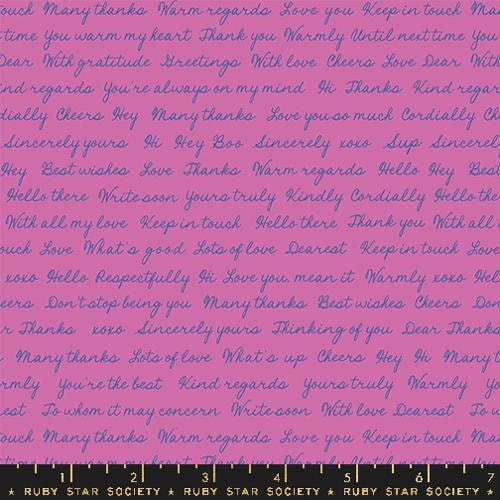 touch Many thanks Warm regards Love you Keep in touch Ma
time You warm my heart Thank you Warmly Until next time You
Dear With gratitude Greetings With love Cheers Love Dear With
nd regards You're always on my mind Hi Thanks Kind regar
dially Cheers Hey Many thanks Love you so much Cordially Ch
Sincerely yours Hi Hey Boo Sincerely xoxo Sup Sincerel
Hey Best wishes Love Thanks Warm regards Hello Hey Best
Hello there Write soon Yours truly Kindly Cordially Hello the
With all my love Keep in touch Hello there Thank you With all
ouch Love What's good Lots of love Dearest Keep in touch Love
xoxo Hello Respectfully Hi Love you, mean it Warmly xoxo Hel
eers Don't stop being you Many thanks Best wishes Cheers Don
r Thanks xoxo Sincerely yours Thinking of you Dear Thanks
Many thanks Lots of love What's up Cheers Hey Hi Many t
rmly You're the best Kind regards Yours truly Warmly Yo
est To whom it may concern Write soon With love Dearest To w
ouch Many thanks Warm regards Love you Keep in touch Ma
time You warm my heart Thank you Warmly Until next time You
1 2 3 4 5 6 7
RUBY STAR SOCIETY ★ RUBY STAR SOCIETY ★ RUBY STAR SOCIETY ★ RUBY STAR SOCIETY